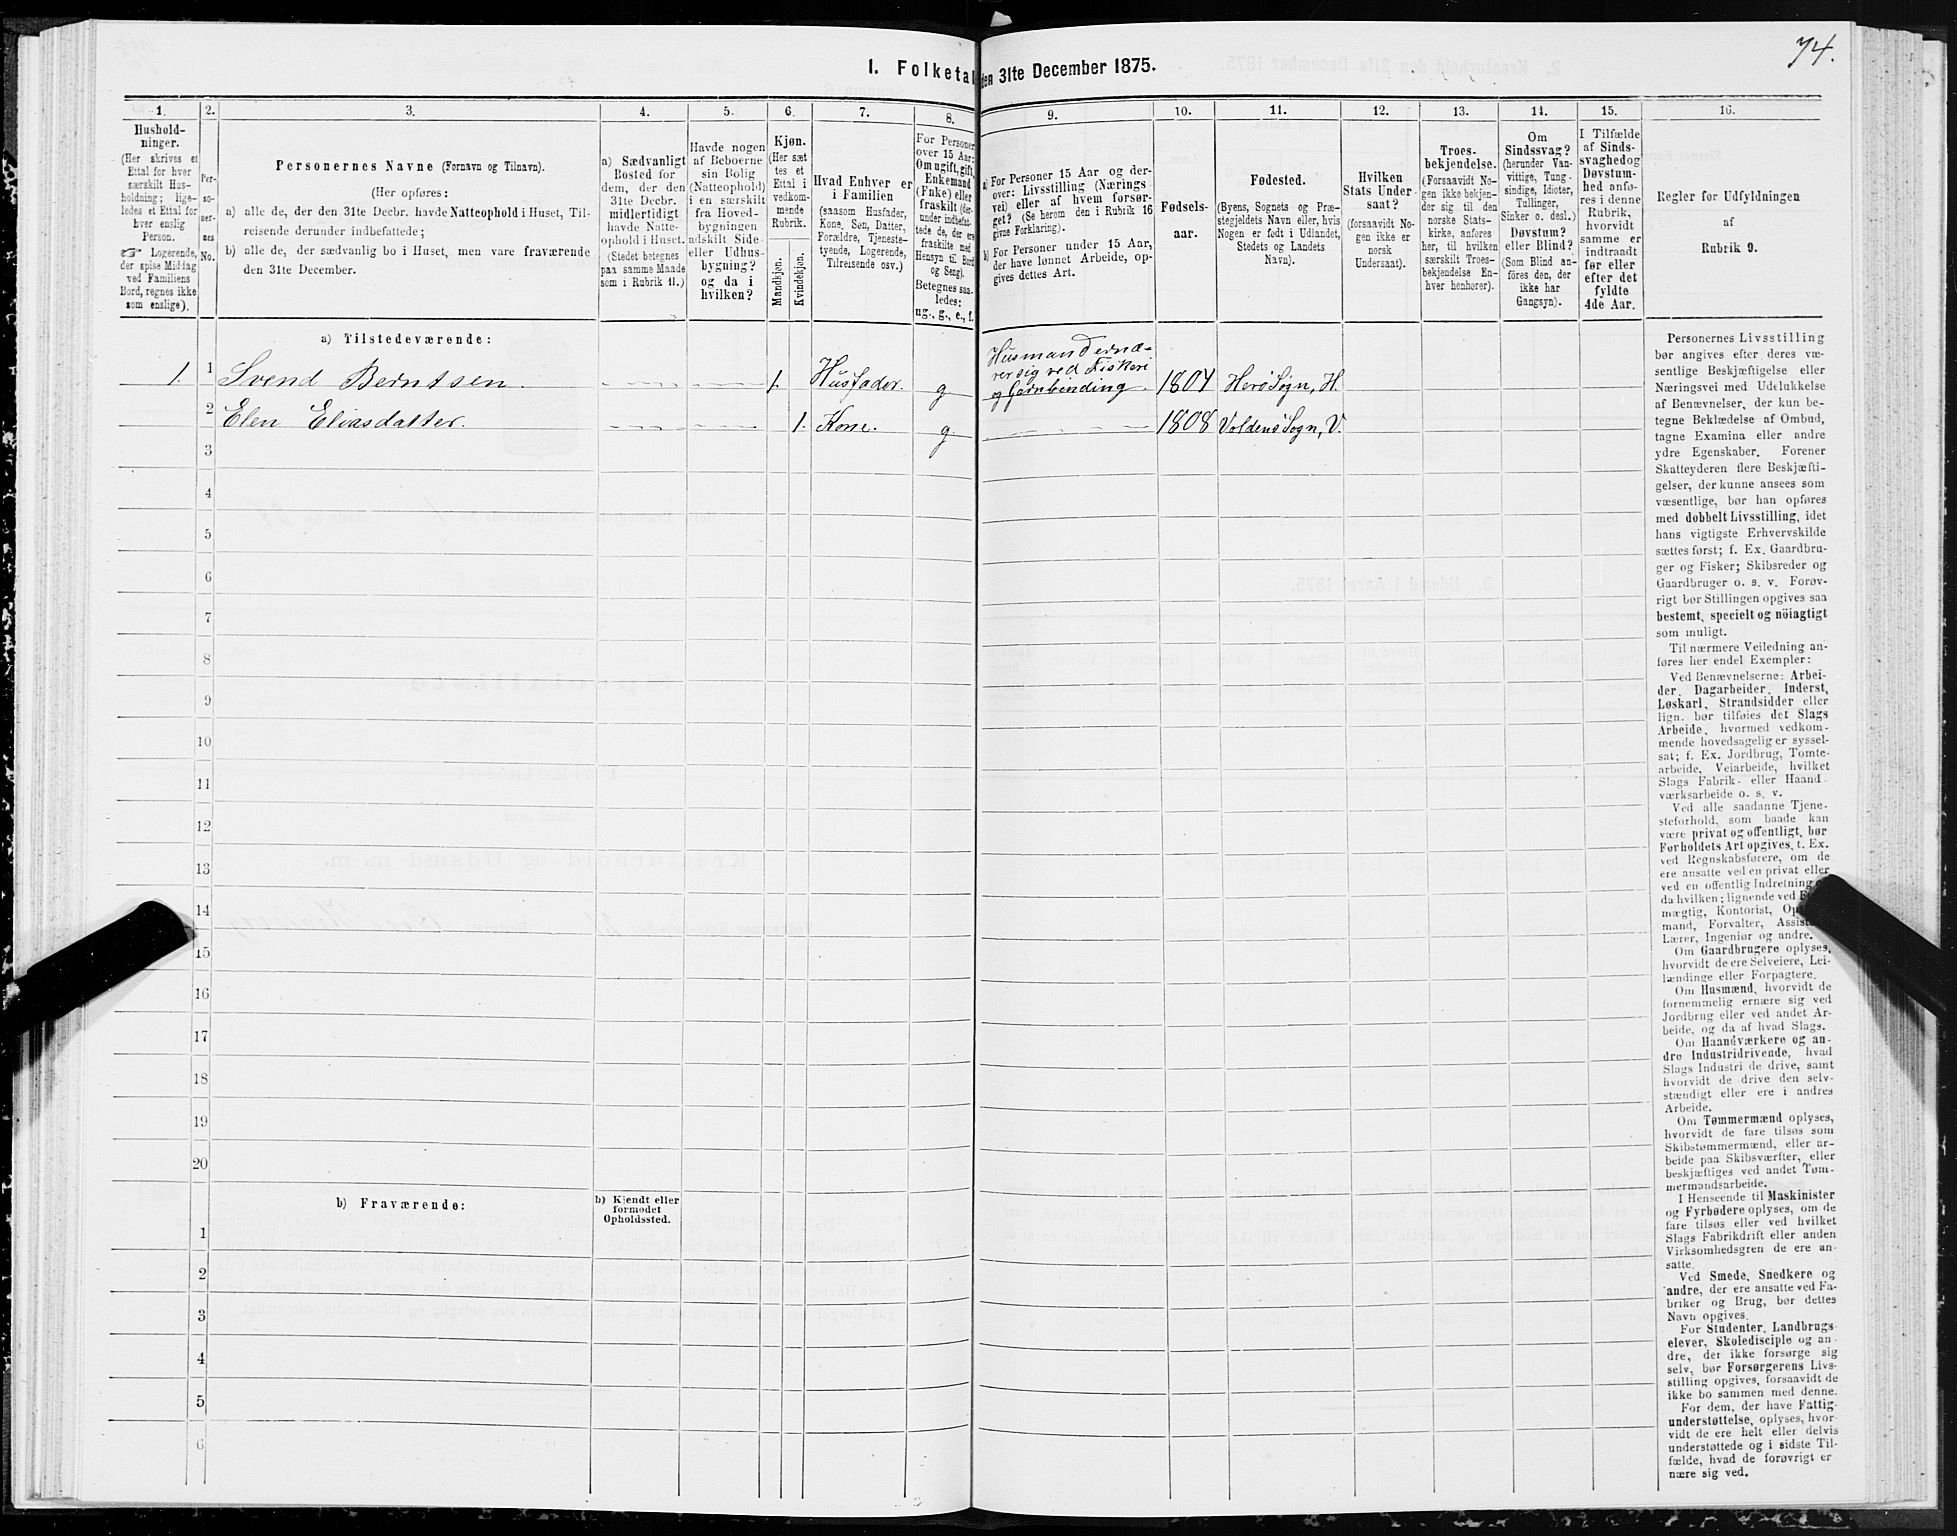 74.
1. Folketal den 31te December 1875.
1.
2.
3.
4.
5.
6.
7.
8.
9.
10.
11.
12.
13.
14.
15.
16.
Hushold-
ninger.
(Her skrives et
Ettal for hver
særskilt Hus-
holdning; lige-
ledes et Ettal for
hver enslig
Person.
☞ Logerende,
der spise Middag
ved Familiens
Bord, regnes ikke
som enslige).
Per-
so-
ner-
nes
No.
Personernes Navne (Fornavn og Tilnavn).
(Her opføres:
a) alle de, der den 31te Decbr. havde Natteophold i Huset, Til-
reisende derunder indbefattede;
b) alle de, der sædvanlig bo i Huset, men vare fraværende
den 31te December.
a) Sædvanligt
Bosted for
dem, der den
31te Decbr.
midlertidigt
havde Natte-
ophold i Huset.
(Stedet betegnes
paa samme Maade
som i Rubrik 11.)
Havde nogen
af Beboerne
sin Bolig
(Natteophold)
i en særskilt
fra Hoved-
bygningen
adskilt Side-
eller Udhus-
bygning?
og da i
hvilken?
Kjøn.
(Her sæt
tes et
Ettal i
vedkom-
mende
Rubrik.
Mandkjøn.
Kvindekjøn.
Hvad Enhver er
i Familien
(saasom Husfader,
Kone, Søn, Datter,
Forældre, Tjeneste-
tyende, Logerende,
Tilreisende osv.)
For Personer
over 15 Aar:
Om ugift, gift,
Enkemand
(Enke) eller
fraskilt (der-
under indbefat-
tede de, der ere
fraskilte med
Hensyn til Bord
og Seng).
Betegnes saa-
ledes:
ug., g., e., f.
a) For Personer 15 Aar og der-
over: Livsstilling (Nærings
vei) eller af hvem forsør-
get? (Se herom den i Rubrik 16
givne Forklaring).
b) For Personer under 15 Aar,
der have lønnet Arbeide, op-
gives dettes Art.
Fødsels-
aar.
Fødested.
(Byens, Sognets og Præ-
stegjeldets Navn eller, hvis
Nogen er født i Udlandet,
Stedets og Landets
Navn).
Hvilken
Stats Under
saat?
(forsaavidt No-
gen ikke er
norsk
Undersaat).
Troes-
bekjendelse.
(Forsaavidt No-
gen ikke bekjen-
der sig til den
norske Stats-
kirke, anføres
her, til hvilken
særskilt Troes-
bekjendelse En-
hver henhører).
Om
Sindssvag?
(herunder Van-
vittige, Tung-
sindige, Idioter,
Tullinger,
Sinker o. desl.)
Døvstum?
eller Blind?
(Som Blind an-
føres den, der
ikke har
Gangsyn).
I Tilfælde
af Sinds-
svaghed og
Døvstum-
hed anfø-
res i denne
Rubrik,
hvorvidt
samme er
indtrandt
før eller
efter det
fyldte
4de Aar.
Regler for Udfyldningen
af
Rubrik 9.
a) Tilstedeværende:
1. 1 Svend Berntsen. 1. Husfader. g Husmand ernæ-
rer sig ved Fiskeri
og Garnbinding. 1804 Herø Sogn, H.
2 Elen Eliasdatter. 1. Kone. g 1808 Voldens Sogn, V.
3
4
5
6
7
8
9
10
11
12
13
14
15
16
17
18
19
20
b) Fraværende:
b) Kjendt eller
formodet
Opholdssted.
1
2
3
4
5
6
Personernes Livsstilling
bør angives efter deres væ-
sentlige Beskjæftigelse eller
Næringsvei med Udelukkelse
af Benævnelser, der kun be-
tegne Beklædelse af Ombud,
tagne Examina eller andre
ydre Egenskaber. Forener
Skatteyderen flere Beskjæfti-
gelser, der kunne ansees som
væsentlige, bør han opføres
med dobbelt Livsstilling, idet
hans vigtigste Erhvervskilde
sættes først; f. Ex. Gaardbru-
ger og Fisker; Skibsreder og
Gaardbruger o. s. v. Forøv-
rigt bør Stillingen opgives saa
bestemt, specielt og nöiagtigt
som muligt.
Til nærmere Veiledning an-
føres her endel Exempler:
Ved Benævnelserne: Arbei-
der, Dagarbeider, Inderst,
Løskarl, Strandsidder eller
lign. bør tilføies det Slags
Arbeide, hvormed vedkom-
mende hovedsagelig er syssel-
sat; f. Ex. Jordbrug, Tomte-
arbeide, Veiarbeide, hvilket
Slags Fabrik- eller Haand-
værksarbeide o. s. v.
Ved alle saadanne Tjene-
steforhold, som baade kan
være privat og offentligt, bør
Forholdets Art opgives, t. Ex.
ved Regnskabsførere, om de
ere ansatte ved en privat eller
ved en offentlig Indretning
da hvilken; lignende ved
mægtig, Kontorist,
mand, Forvalter,
Lærer, Ingeniør og andre.
Om Gaardbrugere oplyses,
hvorvidt de ere Selveiere, Lei-
lændinge eller Forpagtere.
Om Husmænd, hvorvidt de
fornemmelig ernære sig ved
Jordbrug eller ved andet Ar-
beide, og da af hvad Slags.
Om Haandværkere og an-
dre Industridrivende, hvad
Slags Industri de drive, samt
hvorvidt de drive den selv-
stændigt eller ere i andres
Arbeide.
Om Tømmermænd oplyses,
hvorvidt de fare tilsøs som
Skibstømmermænd, eller ar-
beide paa Skibsværfter, eller
beskjæftiges ved andet Tøm-
mermandsarbeide.
I Henseende til Maskinister
og Fyrbødere oplyses, om de
fare tilsøs eller ved hvilket
Slags Fabrikdrift eller anden
Virksomhedsgren de ere an-
satte.
Ved Smede, Snedkere og
andre, der ere ansatte ved Fa-
briker og Brug, bør dettes
Navn opgives.
For Studenter, Landbrugs-
elever, Skoledisciple og an-
dre, der ikke forsørge sig
selv, bør Forsørgerens Livs-
stilling opgives, forsaavidt de
ikke bo sammen med denne.
For dem, der have Fattig-
understøttelse, oplyses, hvor-
vidt de ere helt eller delvis
understøttede og i sidste Til-
fælde, hvad de forøvrigt er-
nære sig ved.